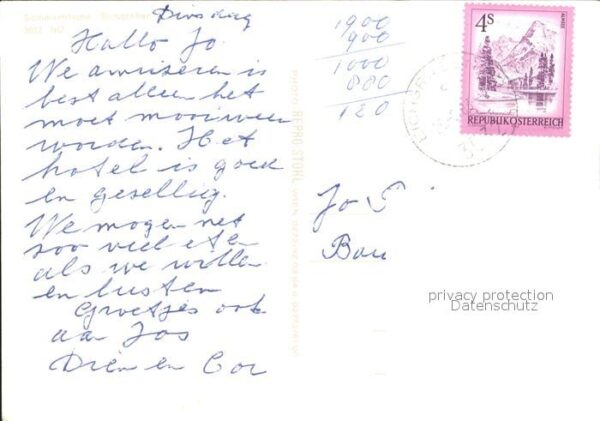 Dinsdag
Hallo Jo.
We amuseren is
best alleen het
moet mooi weer
worden. Het
hotel is goed
en gesellig.
We mogen net
soo veel eten
als we willen
en lusten
Groetjes ook
aan Jos
Dien en Cor
1900
900
1000
880
120
4S
ALMSEE
REPUBLIK ÖSTERREICH
REPRO STOHL
Jo
privacy protection
Datenschutz